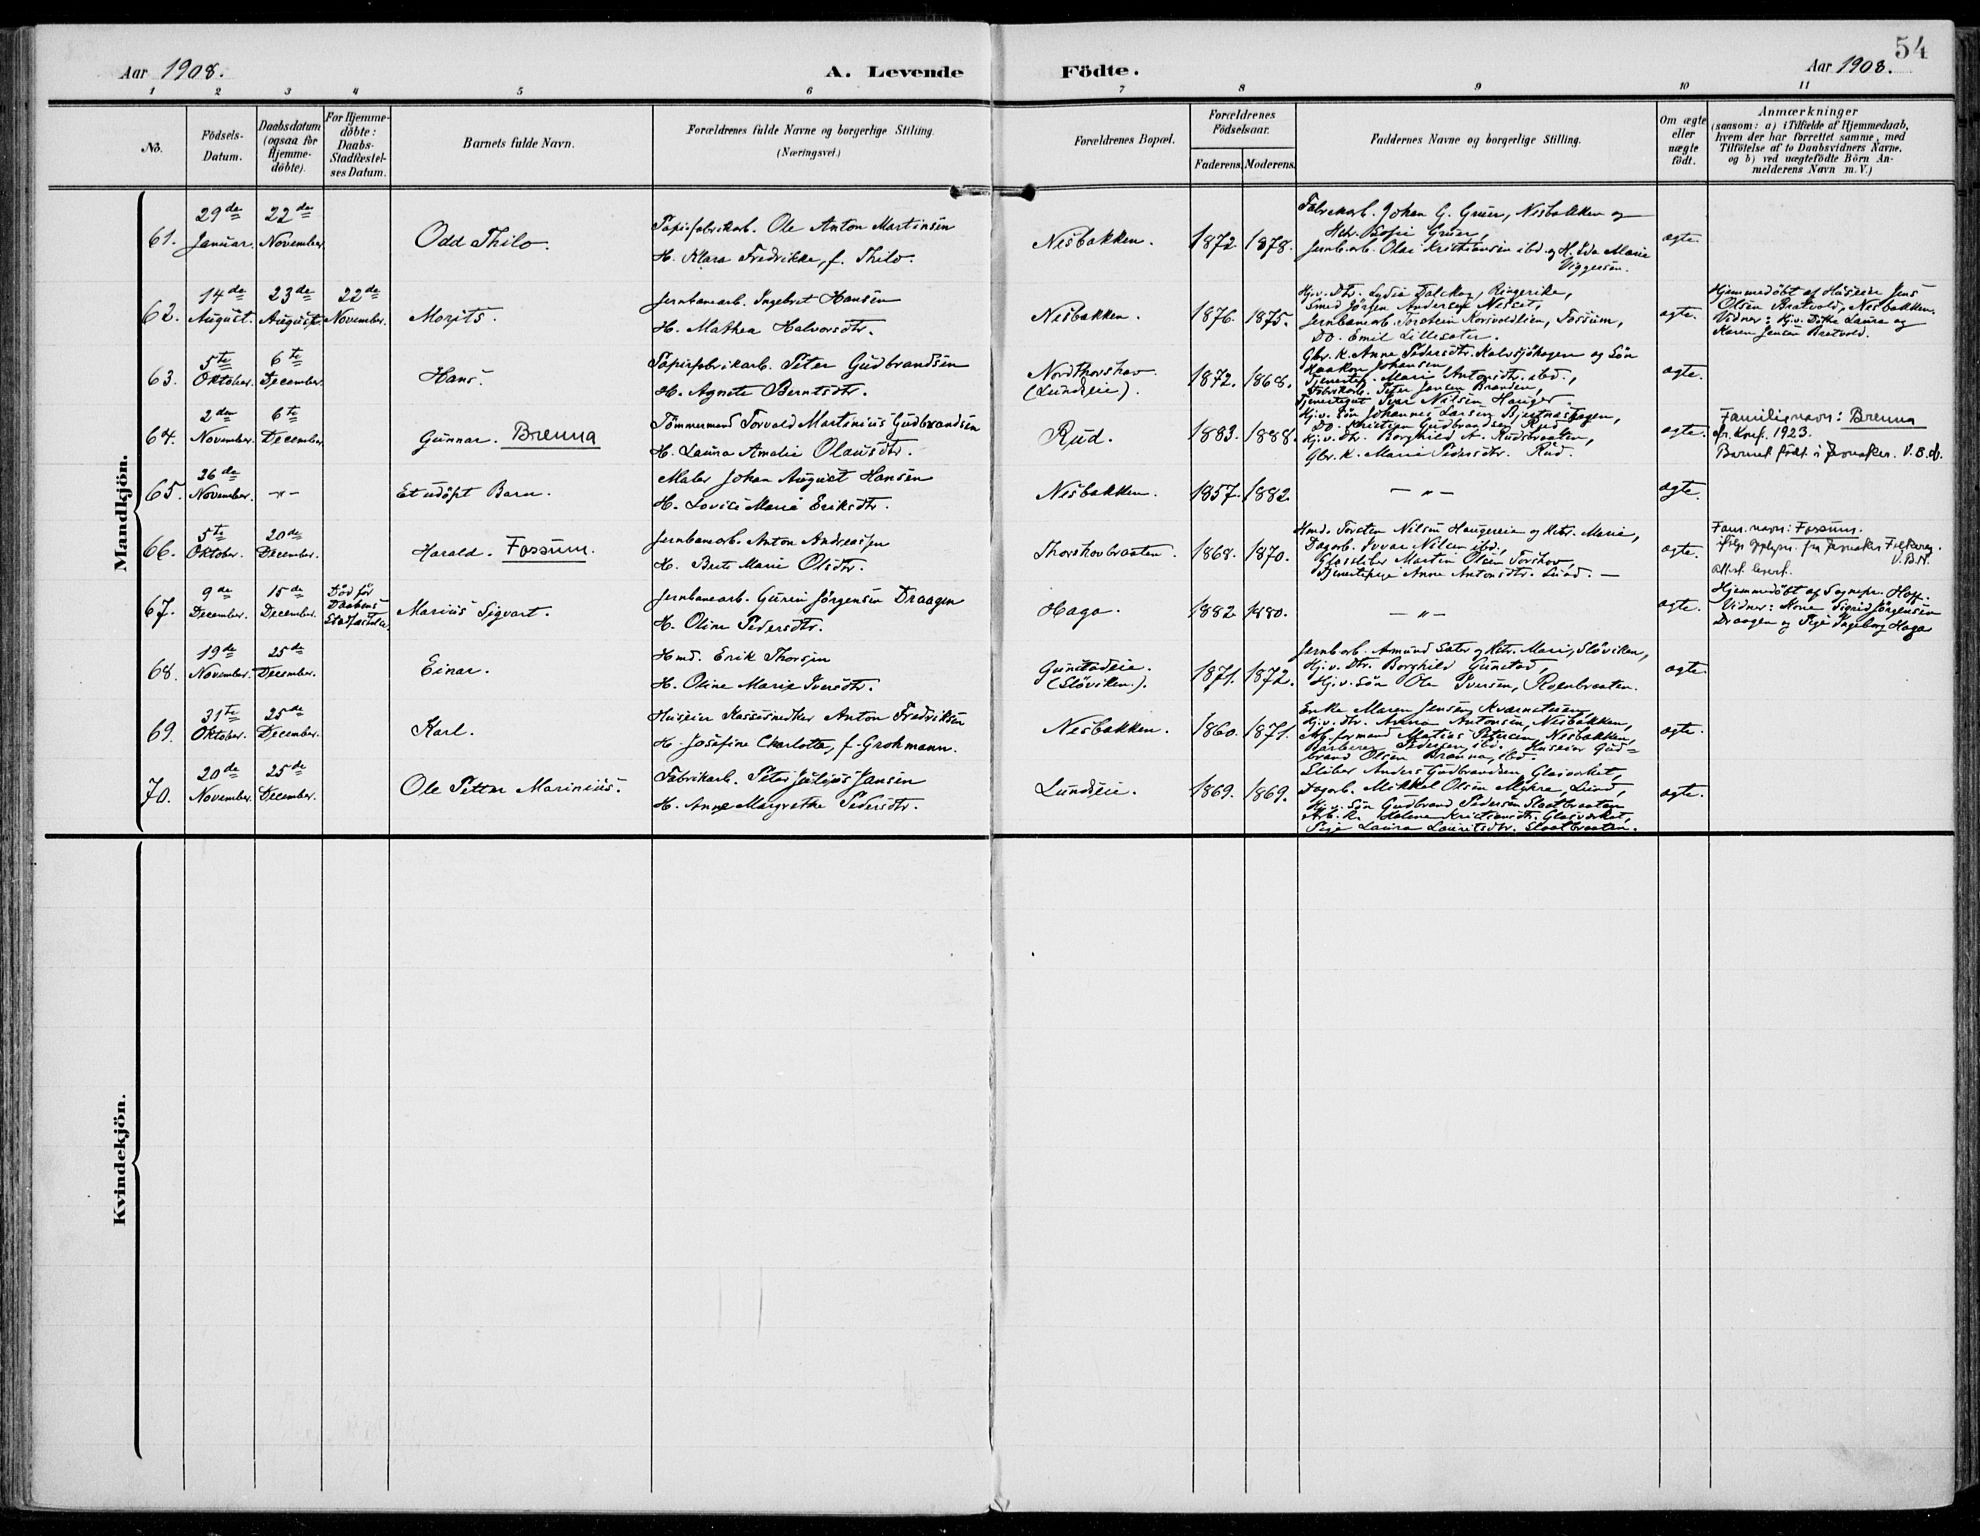 54
Aar 1908.
A. Levende Födte.
Aar 1908.
1 2 3 4 5 6 7 8 9 10 11
No.
Födsels-
Datum.
Daabsdatum
(ogsaa for
Hjemme-
döbte).
For Hjemme-
döbte:
Daabs-
Stadfæstel-
ses Datum.
Barnets fulde Navn.
Forældrenes fulde Navne og borgerlige Stilling.
(Næringsvei.)
Forældrenes Bopæl.
Forældrenes
Födselsaar.
Faderens.
Moderens.
Faddernes Navne og borgerlige Stilling.
Om ægte
eller
uægte
födt.
Anmærkninger
(saasom: a) i Tilfælde af Hjemmedaab,
hvem der har forrettet samme, med
Tilföielse af to Daabsvidners Navne,
og b) ved uægtefödte Börn An-
melderens Navn m. V.)
Mandkjön.
61.
29de
Januar.
22de
November.
Odd Thilo.
Papirfabrikarb. Ole Anton Martinsen
H. Klara Fredrikke, f. Thilo.
Nesbakken.
1872.
1878.
Fabrikarb. Johan G. Gruer, Nesbakken og
Hstr. Sofie Gruer,
Jernb.arb. Olai Kristiansen ibd. og H. Eda Marie
Viggersen.
ægte.
62.
14de
August.
23de
August.
22de
November.
Morits.
Jernbanearb. Ingebret Hansen
H. Mathea Halvorsdtr.
Nesbakken.
1876.
1875.
Hjv. Dtr. Lydia Falcken, Ringerike,
Smed Jørgen Andersen Nesset,
Jernbanearb. Torstein Korsvoldlien, Fossum,
Do. Emil Lillesæter.
ægte.
Hjemmedöbt af Huseier Jens
Olsen Bratvold, Nesbakken.
Vidner: Hjv. Dtr. Laura og
Karen Jensen Bratvold.
63.
5te
Oktober.
6te
December.
Hans.
Papirfabrikarb. Peter Gudbrandsen
H. Agnete Berntsdtr.
Nordthorshov
(Lundeie).
1872.
1868.
Gbr. K. Anne Pedersdtr. Kalvsjöhagen og Sön
Haakon Johansen
Tjenestep. Marie Antonsdtr. ibd.,
Fabrikarb. Peter Jensen Branden,
Tjenestegut Ivar Nilsen Hauger.
ægte.
64.
2den
November.
6te
December.
Gunnar. Brenna
Tömmermand Torvald Martinius Gudbrandsen
H. Laura Amalie Olausdtr.
Rud.
1883.
1888.
Hjv. Sön Johannes Larsen Bjertnashagen,
Do. Kristian Gudbrandsen Rud,
Hjv. Dtr. Borghild A. Rudsbraaten,
Gbr. K. Marie Pedersdtr. Rud.
ægte.
Familienavn: Brenna
fr. Konf. 1923.
Barnet födt i Jevnaker. V.B.
65.
26de
November.
-"-
Et udöpt Barn.
Maler Johan August Hansen
H. Lovise Marie Eriksdtr.
Nesbakken.
1857.
1882.
-"-
ægte.
66.
5te
Oktober.
20de
December.
Harald. Fossum.
Jernbanearb. Anton Andreassen
H. Berte Marie Olsdtr.
Thorshovbraaten.
1868.
1870.
Hmd. Torsten Nilsen Haugereie og Hstr. Marie,
Dagarb. Ivvar Nilsen ibd.,
Glassliber Martin Olsen Torshov,
Tjenestepige Anne Antonsdtr. Lund.
ægte.
Fam. navn: Fossum.
ifölge opplysn. fra Jevnaker Folkereg.
V.B.N.
67.
9de
December.
15de
December.
Död för
Daabens
Stadfæstelse.
Marius Sigvart.
Jernbanearb. Gunen Jörgensen Draagen
H. Oline Pedersdtr.
Haga.
1882
1880.
-"-
ægte.
Hjemmedöbt af Sognepr. Hopp.
Vidner: Kone Sigrid Jörgensen
Draagen og Pige Ingeborg Haga
68.
19de
November.
25de
December.
Einar.
Hmd. Erik Thorsen
H. Oline Marie Iversdtr.
Gunstadeie.
(Slöviken.).
1871.
1872.
Jernb.arb. Amund Sæter og Hstr. Mari, Slöviken,
Hjv. Dtr. Borghild Gunstad,
Hjv. Sön Ole Iversen, Rosenbraaten.
ægte.
69.
31te
Oktober.
25de
December.
Karl.
Huseier Kassesnedker Anton Fredriksen
H. Josefine Charlotte, f. Grohmann.
Nesbakken.
1860.
1871.
Enke Maren Jensen Kvernstuen,
Hjv. Dtr. Anna Antonsen, Nesbakken,
Arb.formand Matias Petersen, Nesbakken,
Barberer Pedersen, ibd. Huseier Gud-
brand Olsen Brenna, ibd.
ægte.
70.
20de
November.
25de
December.
Ole Petter Marinius.
Fabrikarb. Peter Julius Jansen
H. Anne Margrethe Pedersdtr.
Lundseie.
1869.
1869.
Sliber Anders Gudbrandsen Glasverket,
Dagarb. Mikkel Olsen Myhre, Lund,
Hjv. Sön Gudbrand Pedersen Slaatbraaten
Arb. K. Helene Kristiansdtr. Glasverket,
Pige Laura Lauritsdtr. Slaatbraaten.
ægte.
Kvindekjön.